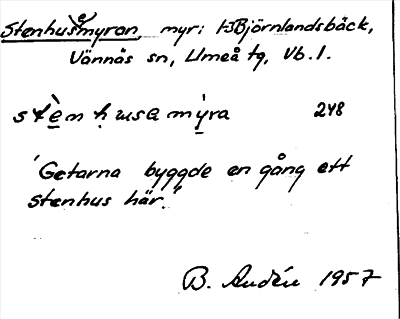 Stenhusmyran, myr; i Björnlandsbäck,
Vännäs sn, Umeå tg, Vb. l.
248
'Getarna byggde en gång ett
stenhus här.'
B. Audén 1957